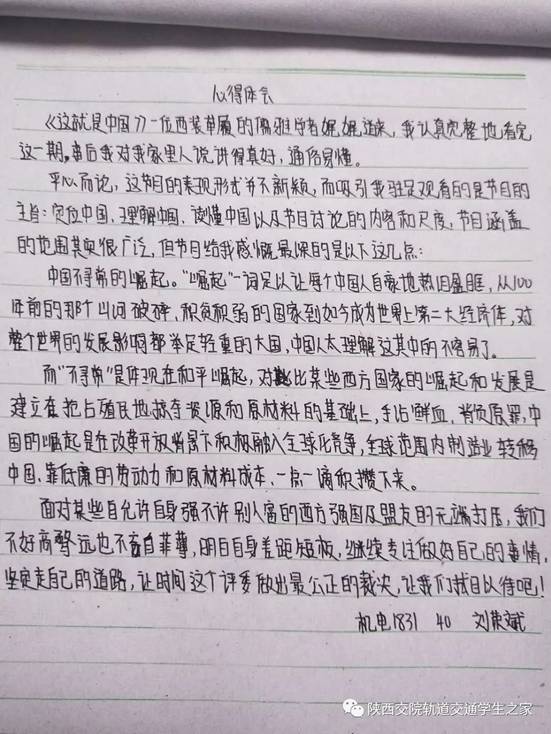 心得体会
《这就是中国》一位西装革履的儒雅学者娓娓道来,我认真完整地看完
这一期。事后我对我家里人说讲得真好,通俗易懂。
平心而论,这节目的表现形式并不新颖,而吸引我驻足观看的是节目的
主旨:定位中国、理解中国、读懂中国以及节目讨论的内容和尺度,节目涵盖
的范围其实很广泛,但节目给我感慨最深的是以下这几点:
中国不寻常的崛起。“崛起”一词足以让每个中国人自豪地热泪盈眶,从100
年前的那个山河破碎、积贫积弱的国家到如今成为世界上第二大经济体,对
整个世界的发展影响都举足轻重的大国,中国人太理解这其中的不容易了。
而“不寻常”是体现在和平崛起,对比某些西方国家的崛起和发展是
建立在把占殖民地掠夺资源和原材料的基础上,手沾鲜血、背负原罪,中
国的崛起是在改革开放背景下积极融入全球化竞争,全球范围内制造业转移
中国、靠低廉的劳动力和原材料成本、一点一滴积攒下来。
面对某些自允许自身强不许别人富的西方强国及盟友的无端打压,我们
不好高骛远也不妄自菲薄,明白自身差距短板,继续专注做好自己的事情,
坚定走自己的道路,让时间这个评委做出最公正的裁决,让我们拭目以待吧!
机电1831 40 刘荣斌
陕西交院轨道交通学生之家